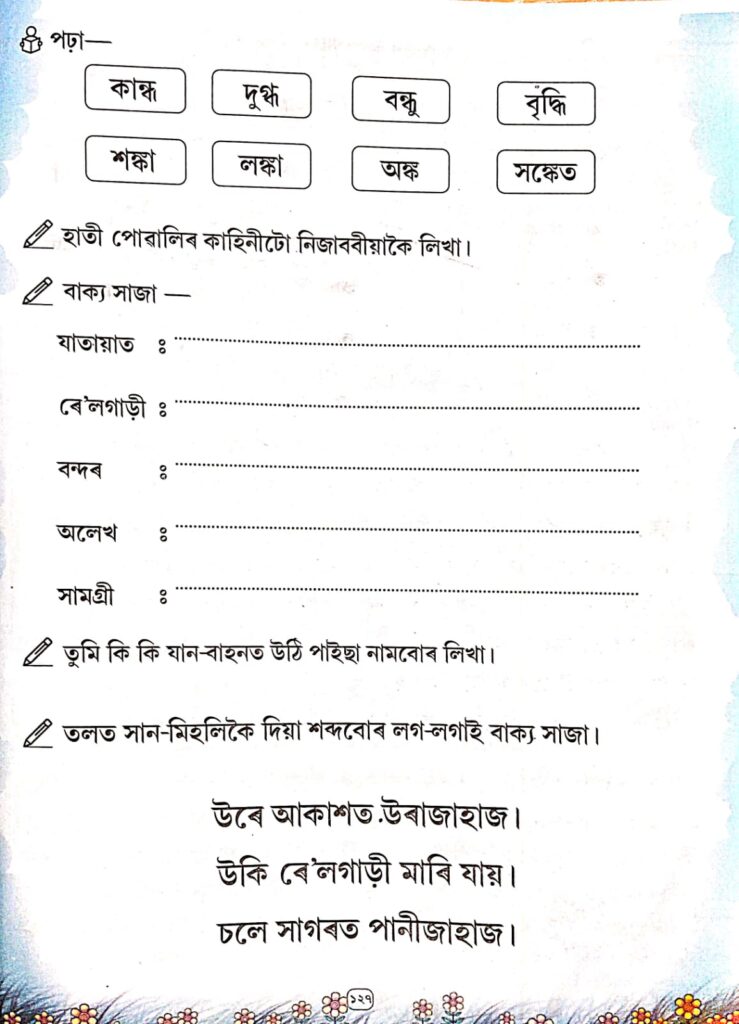 পঢ়া—
কান্ধ দুগ্ধ বন্ধু বৃদ্ধি
শঙ্কা লঙ্কা অঙ্ক সঙ্কেত
হাতী পোৱালিৰ কাহিনীটো নিজাববীয়াকৈ লিখা।
বাক্য সাজা —
যাতায়াত ঃ
ৰে'লগাড়ী ঃ
বন্দৰ ঃ
অলেখ ঃ
সামগ্ৰী ঃ
তুমি কি কি যান-বাহনত উঠি পাইছা নামবোৰ লিখা।
তলত সান-মিহলিকৈ দিয়া শব্দবোৰ লগ-লগাই বাক্য সাজা।
উৰে আকাশত উৰাজাহাজ।
উকি ৰে'লগাড়ী মাৰি যায়।
চলে সাগৰত পানীজাহাজ।
১২৭